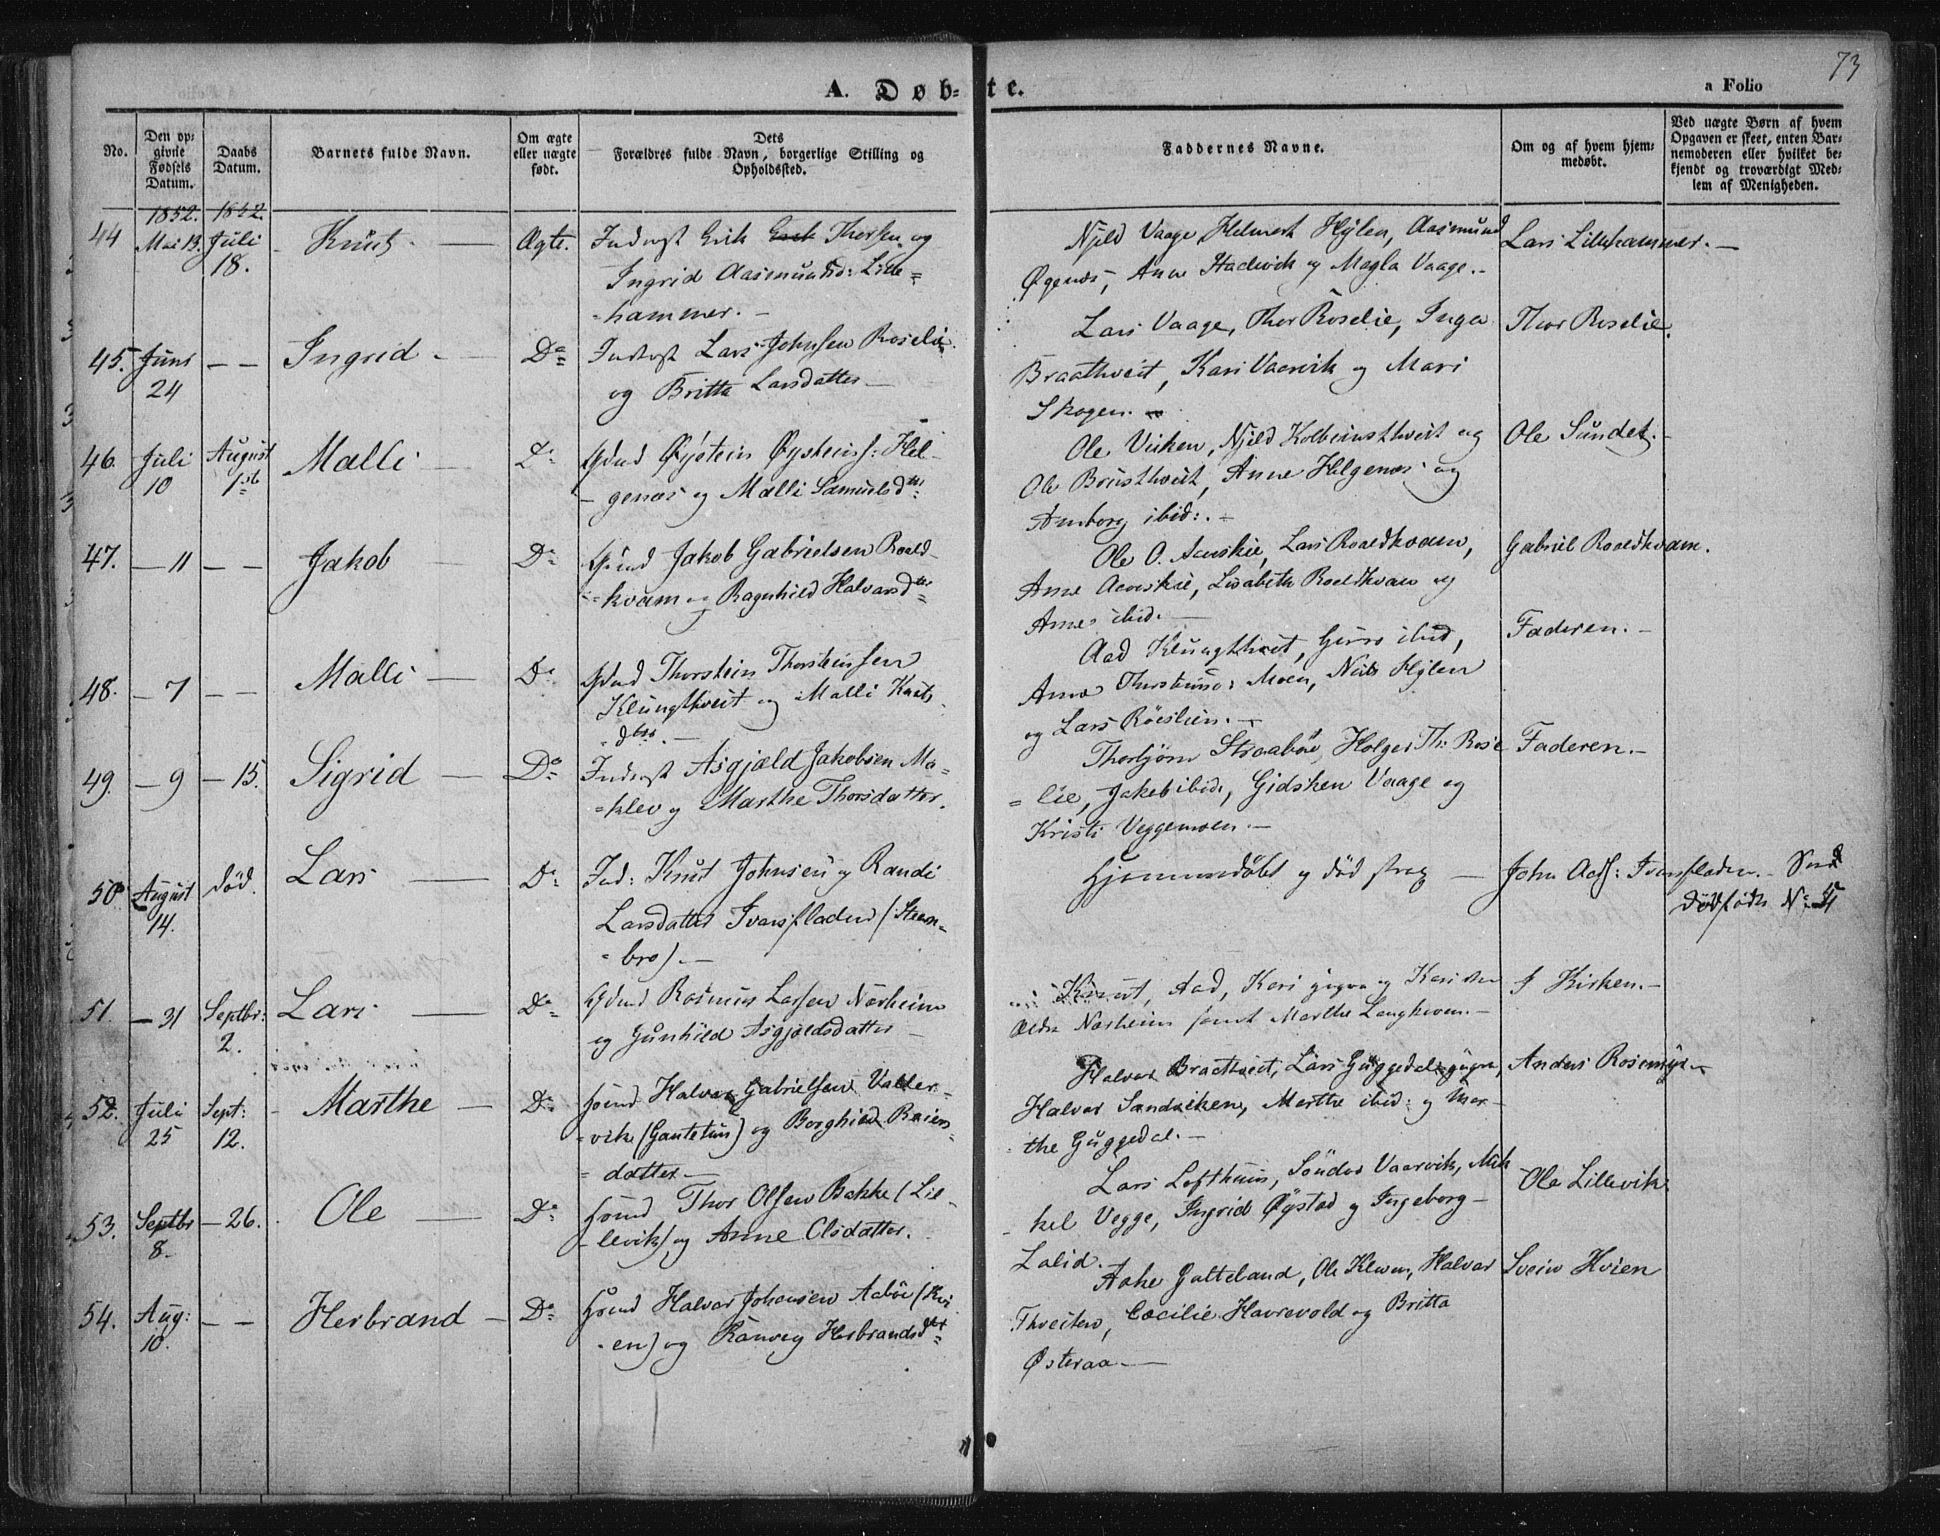 73
A. Døb-
te.
a Folio
No.
Den op-
givne
Fødsels
Datum.
Daabs
Datum.
Barnets fulde Navn.
Om ægte
eller uægte
født.
Dets
Forældres fulde Navn, borgerlige Stilling og
Opholdssted.
Faddernes Navne.
Om og af hvem hjem-
medøbt.
Ved uægte Børn af hvem
Opgaven er skeet, enten Bar-
nemoderen eller hvilket be-
kjendt og troværdigt Med-
lem af Menigheden.
1852. 1852.
44 Mai 13. Juli
18.
Knut
Ægte.
Inderst Erik Thorsen og
Ingrid Aasmundsd: Lille=
=hammer.
Njeld Vaage, Helmert Hylen, Aasmund
Øgenæs, Anne Hadevik og Magla Vaage.
Lars Lillehammer.
45. Juni
24
Ingrid
Do
Inderst Lars Johnsen Roselie
og Britta Larsdatter
Lars Vaage, Thor Roselie, Inga
Braathveit, Kari Vaarvik og Mari
Skogen.
Thor Roselie
46. Juli
10
August
1st
Malli
Do
Gdmd Øystein Øysteins: Hel-
genæs og Malli Samuelsdtr
Ole Viken, Njeld Kolbeinsthveit og
Ole Brusthveit, Anne Helgenæs og
Amborg ibid:.
Ole Sundet.
47. 11
Jakob
Do
Gdmd Jakob Gabrielsen Roald-
=kvam og Ragnhild Halvarsdtr
Ole O. Aarskie, Lars Roaldkvam,
Anne Aarskie, Lisabeth Roaldkvam og
Anne ibid.
Gabriel Roaldkvam.
48. 7
Malli
Do
Gdmd Thorstein Thorsteinsen
Klungthveit og Malli Knuts
dtr.
Aad Klungthveit, Guro ibid,
Anne Moen, Niels Hylen
og Lars Röeslien.
Faderen.
49. 9 15.
Sigrid
Do
Inderst Asgjæld Jakobsen Ma=
=klev og Marthe Thorsdatter.
Thorbjörn Straaböe, Holger Th: Rose
=lie, Jakob ibid., Gidsken Vaage og
Kristi Veggemoen.
Faderen.
50 August
14.
død.
Lars
Do
Ind: Knut Johnsen og Randi
Larsdatter Ivarsfladen (Steen-
=bro).
Hjemmedøbt og død strax
John Ivarsfladen.
Dødfødte No
51. 31 Septbr:
2.
Lars
Do
Gdmd Rasmus Larsen Nærheim
og Gunhild Asgjeldsdatter
Aad, Kari yngre og Kari den
Ældre Nærheim samt Marthe
I Kirken.
52. Juli
25
Sept:
12.
Marthe
Do
Huusmd Halvar Gabrielsen Valler-
=vik (Gautetun) og Borghild Reiers-
=datter
Halvar Braathveit, Lars Guggedal yngre,
Halvar Sandviken, Marthe ibid: og Mar-
the Guggedal.
Anders Rosemyr
53. Septbr
8.
26.
Ole
Do
Huusmd Thor Olsen Bakke (Lil-
levik) og Anne Olsdatter.
Lars Lofthuus, Söndov Vaarvik, Mik
kel Vegge, Ingrid Øystad og Ingeborg
Lalid.
Ole Lillevik
54. Aug:
10.
Herbrand
Do
Huusmd Halvar Johansen Aaböe (Kvi
en) og Rönveg Herbrandsdtr
Aake Gatteland, Ole Kleven, Halvar
Thveiten, Cecilie Havrevold og Britta
Østeraa.
Svein Hvien